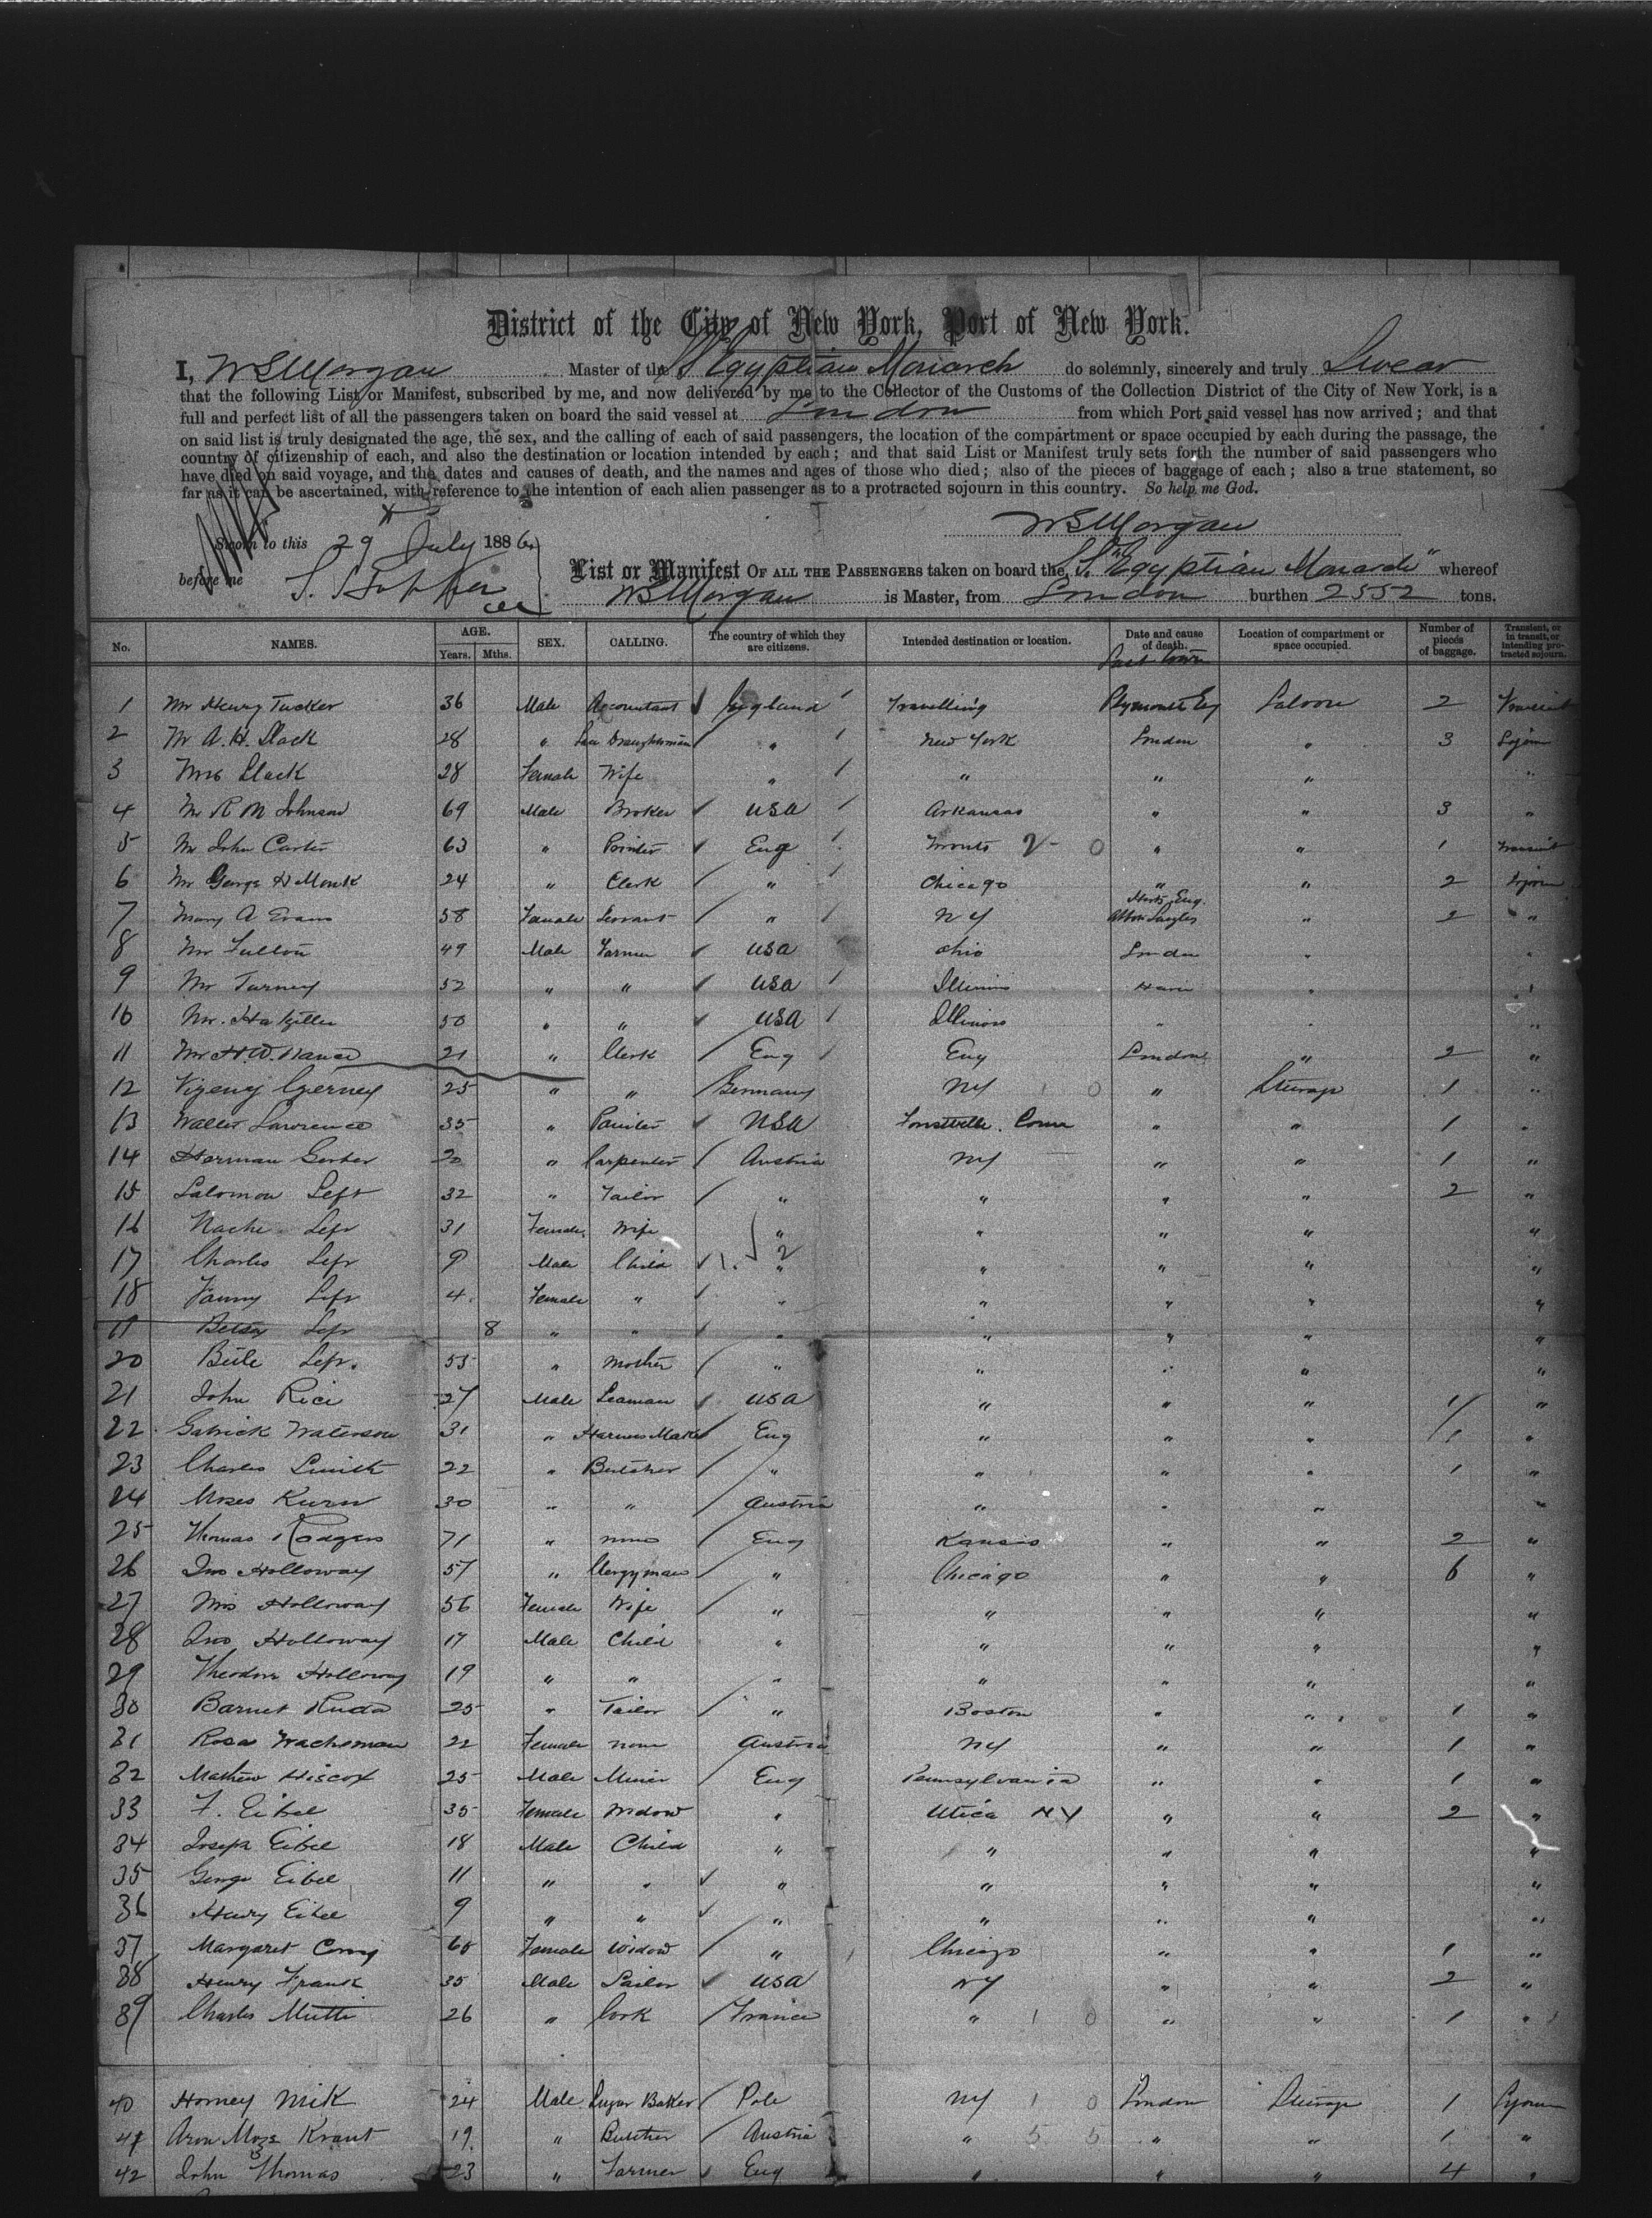 District of the City of New York, Port of New York.
I, W S Morgan Master of the SS Egyptian Monarch do solemnly, sincerely and truly Swear
that the following List or Manifest, subscribed by me, and now delivered by me to the Collector of the Customs of the Collection District of the City of New York, is a
full and perfect list of all the passengers taken on board the said vessel at London from which Port said vessel has now arrived; and that
on said list is truly designated the age, the sex, and the calling of each of said passengers, the location of the compartment or space occupied by each during the passage, the
country of citizenship of each, and also the destination or location intended by each; and that said List or Manifest truly sets forth the number of said passengers who
have died on said voyage, and the dates and causes of death, and the names and ages of those who died; also of the pieces of baggage of each; also a true statement, so
far as it can be ascertained, with reference to the intention of each alien passenger as to a protracted sojourn in this country. So help me God.
W S Morgan
Sworn to this 29 July 1886
before me
List or Manifest OF ALL THE PASSENGERS taken on board the S.S. "Egyptian Monarch" whereof
W S Morgan is Master, from London burthen 2552 tons.
No. NAMES. AGE. Years. Mths. SEX. CALLING. The country of which they are citizens. Intended destination or location. Date and cause of death. Last town Location of compartment or space occupied. Number of pieces of baggage. Transient, or in transit, or intending protracted sojourn.
1 Mr Henry Tucker 36 Male Accountant England Travelling Plymouth Eng Saloon 2 Transient
2 Mr A. H. Slack 28 " Draughtsman " New York London " 3 Sojourn
3 Mrs Slack 28 Female Wife " " " " "
4 Mr R M Johnson 69 Male Broker USA Arkansas " " 3 "
5 Mr John Carter 63 " Eng Toronto 2 - 0 " " 1 Transient
6 Mr George H Monk 24 " Clerk " Chicago " " 2 Sojourn
7 Mary A Evans 58 Female Servant " NY Herts Eng. Abbots Langley " 2 "
8 Mr Fulton 49 Male Farmer USA Ohio London " "
9 Mr Turney 52 " " USA Illinois " "
10 Mr. 50 " " USA Illinois " " "
11 Mr H. W. Nance 21 " Clerk Eng Eng London " 2 "
12 25 " " Germany NY 1 0 " Steerage 1 "
13 Walter Lawrence 35 " Painter USA Conn " " 1 "
14 Herman Gerber 20 " Carpenter Austria NY " " 1 "
15 Salomon 32 " Tailor " " " " 2 "
16 31 Female Wife " " " " "
17 Charles 9 Male Child " 2 " " " "
18 Fanny 4 Female " " " " " "
19 Betsy 8 " " " " " " "
20 55 " Mother " " " " "
21 John Rice 27 Male Seaman USA " " " 1 "
22 Waterson 31 " Harness Maker Eng " " " 1 "
23 Charles Smith 22 " Butcher " " " " 1 "
24 Moses Kurn 30 " " Austria " " " "
25 Thomas Rodgers 71 " none Eng Kansas " " 2 "
26 Jno Holloway 57 " Clergyman " Chicago " " 6 "
27 Mrs Holloway 56 Female Wife " " " " "
28 Jno Holloway 17 Male Child " " " " "
29 Theodore Holloway 19 " " " " " " "
30 Barnet Ruda 25 " Tailor " Boston " " 1 "
31 Rosa Wachsman 22 Female none Austria NY " " 1 "
32 Mathew Hiscox 25 Male Miner Eng Pennsylvania " " 1 "
33 F. Eibel 35 Female Widow " Utica NY " " 2 "
34 Joseph Eibel 18 Male Child " " " " "
35 George Eibel 11 " " " " " " "
36 Henry Eibel 9 " " " " " " "
37 Margaret 60 Female Widow " Chicago " " 1 "
38 Henry Frank 35 Male USA NY " " 2 "
39 Charles 26 " Cook France " 1 0 " " 1 "
40 24 Male Sugar Baker Pole NY 1 0 London Steerage 1 Sojourn
41 Aron Moze Kraut 19 " Butcher Austria " 5 5 " " 1 "
42 John Thomas 23 " Farmer Eng " " " 4 "